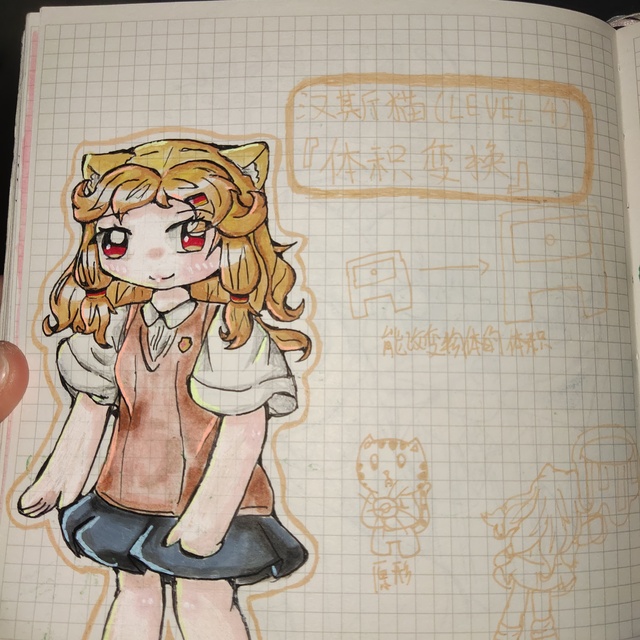 汉其斤猫(LEVEL 4)
『体积变换』
能改变物体的体积
原形